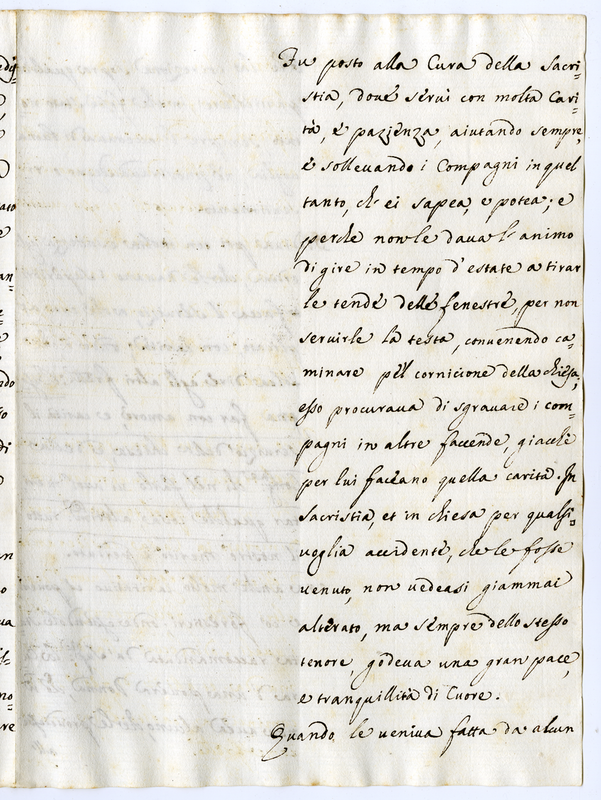 Fu posto alla Cura della Sacri=
stia, dove servì con molta Cari=
tà, e pazienza, aiutando sempre,
e sollevando i Compagni in quel
tanto, ch' ei sapea, e potea; e
perche non le dava l' animo
di gire in tempo d' estate a tirar
le tende delle fenestre, per non
servirle la testa, convenendo ca=
minare pel cornicione della chiesa,
esso procurava di sgravare i com=
pagni in altre faccende, giacchè
per lui faceano quella carità. In
Sacristia, et in chiesa per qualsi=
voglia accidente, che le fosse
venuto, non vedeasi giammai
alterato, ma sempre dello stesso
tenore, godeva una gran pace,
e tranquillità di Cuore.
Quando le veniva fatta da alcun